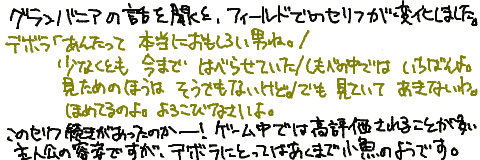 グランバニアの話を聞くと、フィールドでのセリフが変化しました。
デボラ「あんたって 本当におもしろい男ね。/
少なくとも 今まで はべらせていた/しもべの中では いちばんよ。
見ためのほうは そうでもないけど。/でも 見ていて あきないわ。
ほめてるのよ。よろこびなさいよ。
このセリフ続きがあったのかー!ゲーム中では高評価されることが多い
主人公の容姿ですが、デボラにとってはあくまで小魚のようです。